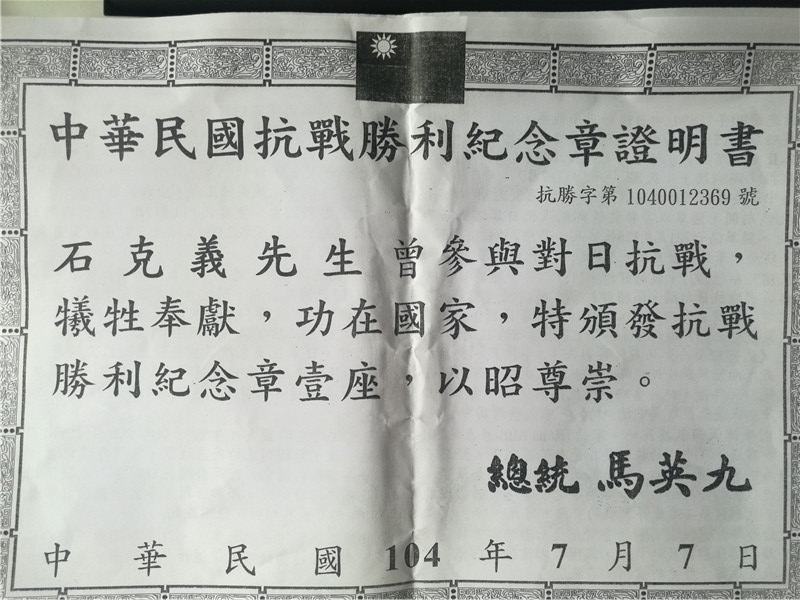 中華民國抗戰勝利紀念章證明書
抗勝字第 1040012369 號
石克義先生曾參與對日抗戰，
犧牲奉獻，功在國家，特頒發抗戰
勝利紀念章壹座，以昭尊崇。
總統 馬英九
中華民國 104 年 7 月 7 日